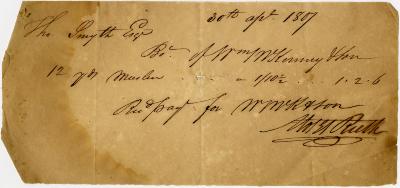 30th apl 1807
Tho Smyth Esqr
Bt. of Wm McKenney & Son
12 yds Muslin - - - - a 1/10½ - - - 1.2.6
Recd pay for W McK & Son